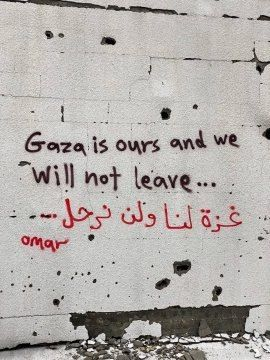 Gaza is ours and we
will not leave...
غزة لنا ولن نرحل...
omar